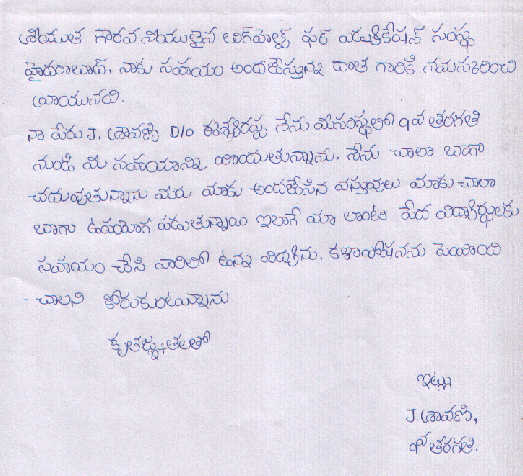 శ్రీయుత గౌరవనీయులైన లిగ్‌హెల్ప్ ఫర్ ఎడ్యుకేషన్ సంస్థ
హైదరాబాద్, నాకు సహాయం అందజేస్తున్న దాత గారికి నమస్కరించి
వ్రాయునది.
నా పేరు J. శ్రావణి D/o ఈశ్వరయ్య నేను మీసంస్థలో 9వ తరగతి
నుండి మీ సహాయాన్ని పొందుతున్నాను. నేను చాలా బాగా
చదువుతున్నాను మీరు మాకు అందజేసిన వస్తువులు మాకు చాలా
బాగా ఉపయోగ పడుతున్నాయి ఇలాగే మా లాంటి పేద విద్యార్థులకు
సహాయం చేసి వారిలో ఉన్న విద్యను, కళాపోషనను పెంచాలి
చాలని కోరుకుంటున్నాను
కృతజ్ఞతలతో
ఇట్లు
J శ్రావణి,
తరగతి.